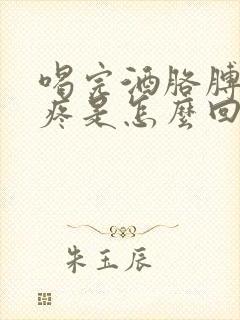 喝完酒胳膊
疼是怎麼回
朱玉辰